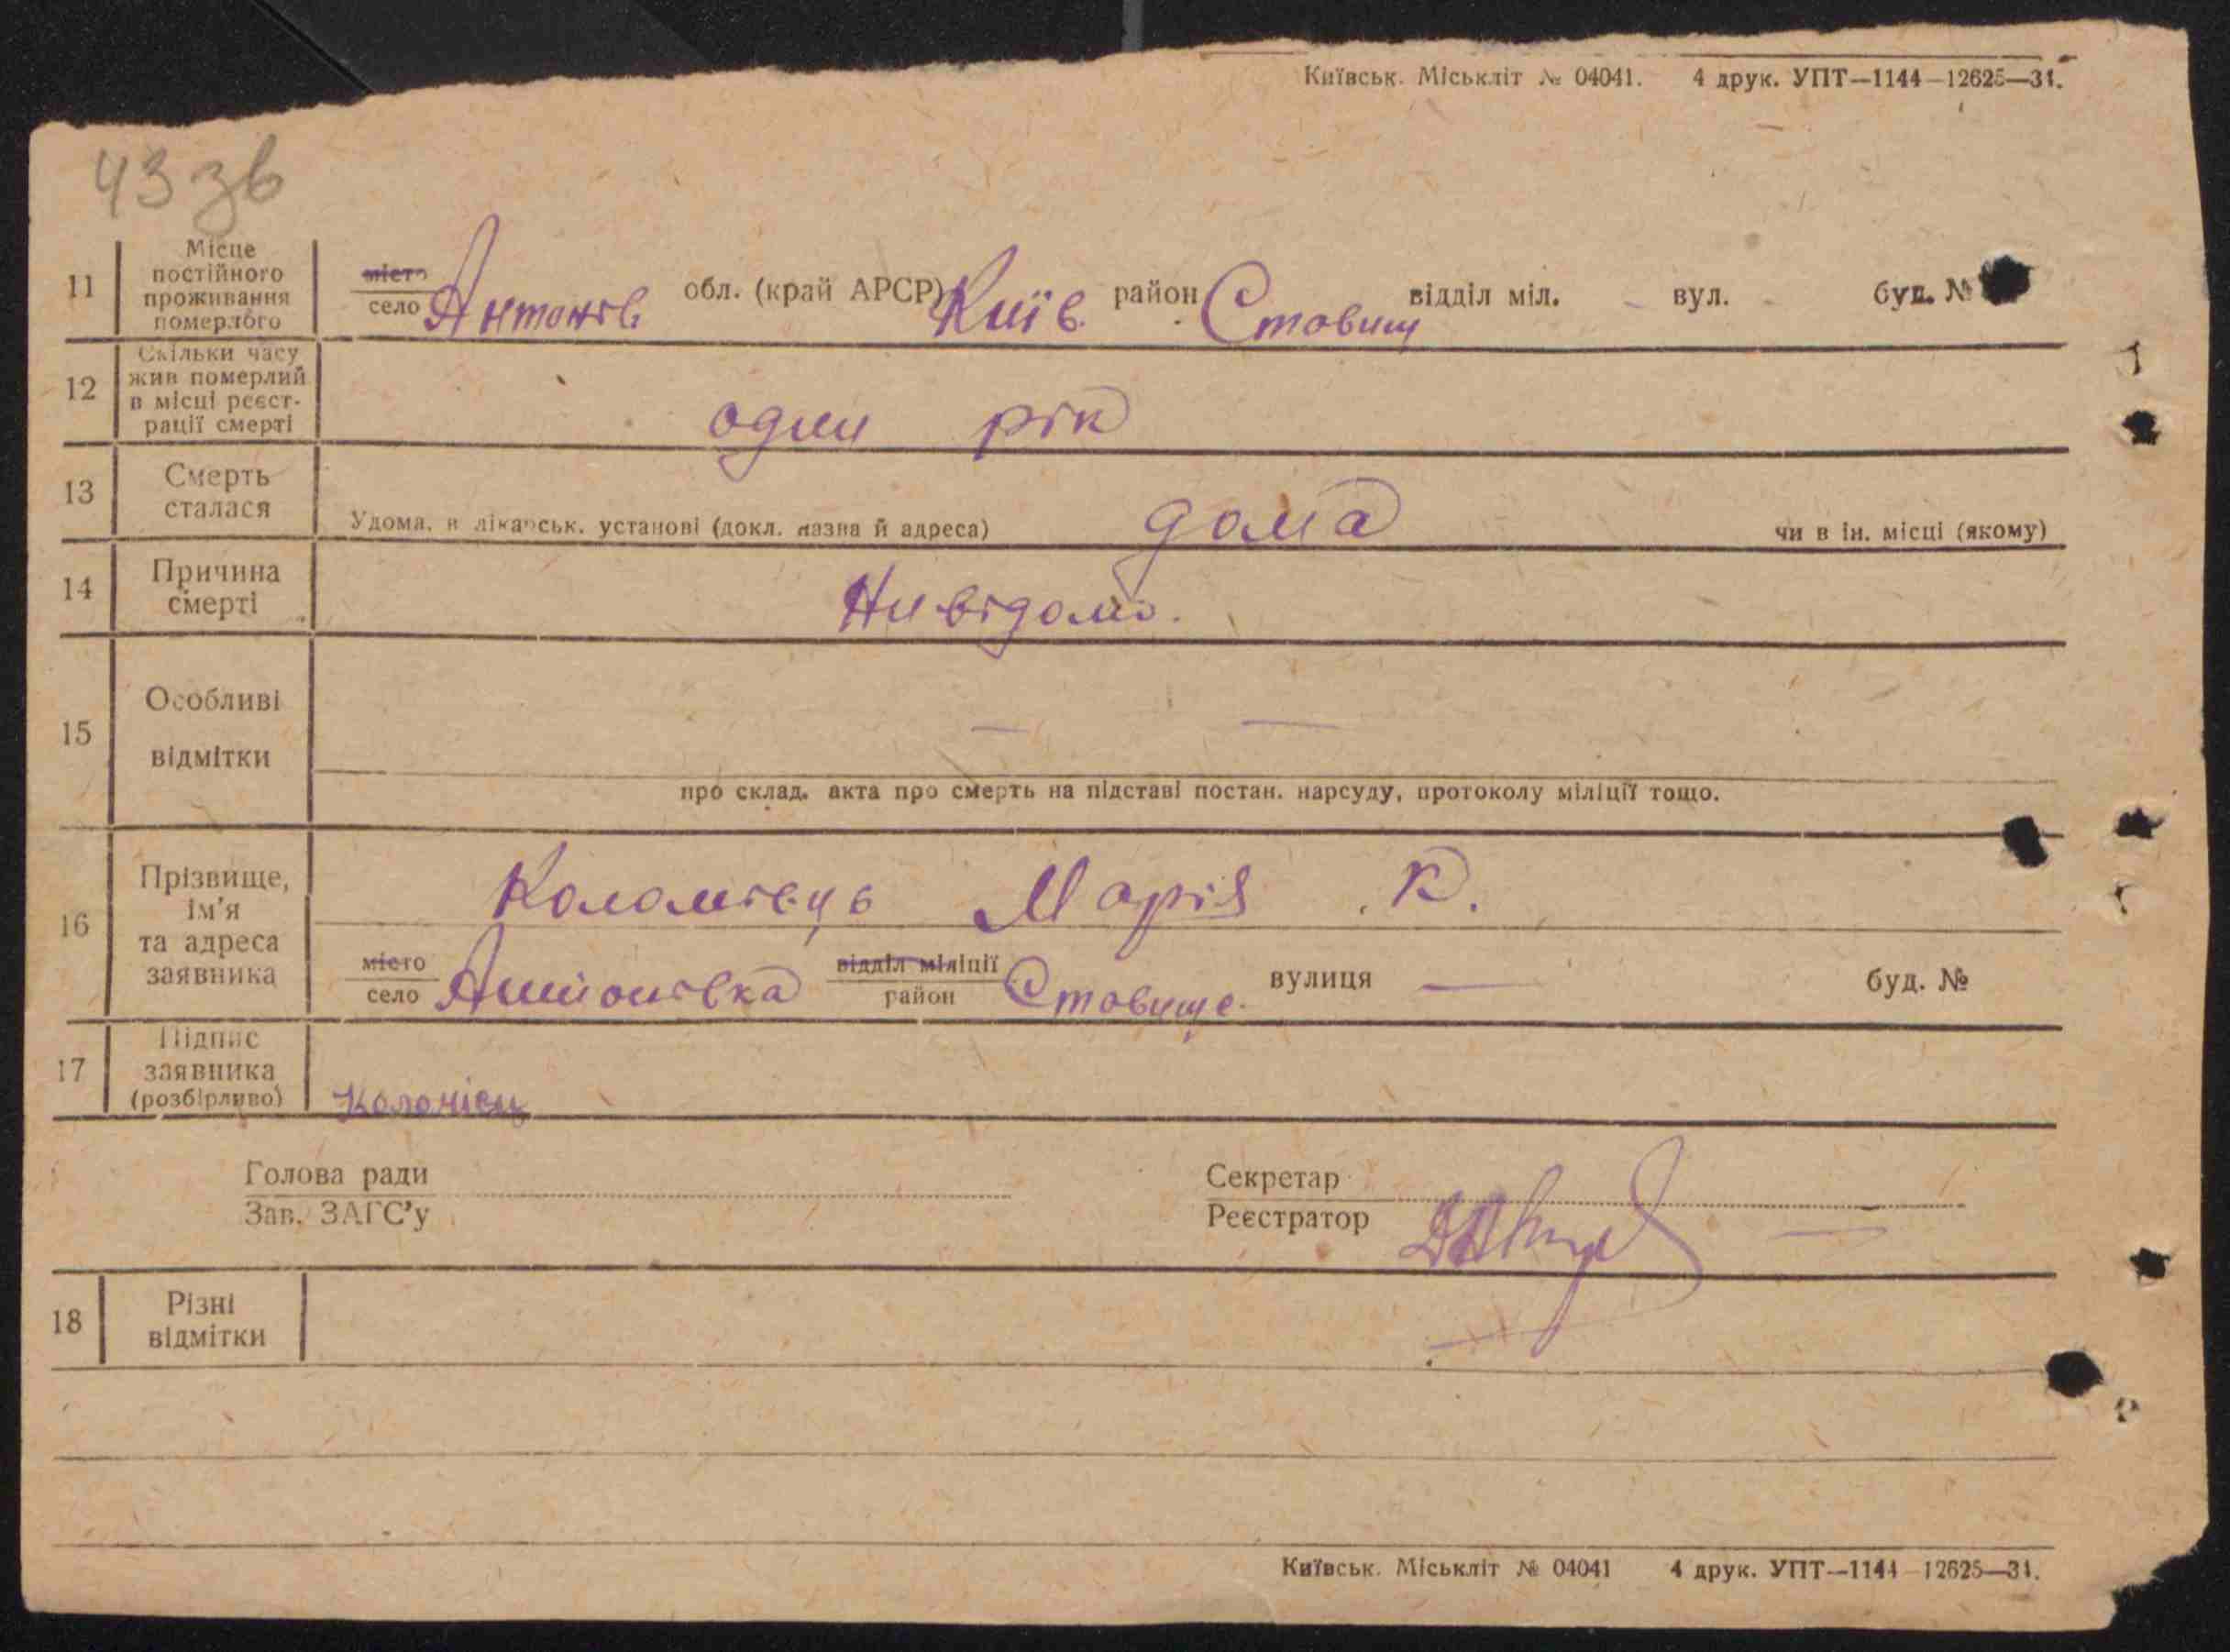 Київськ. Міськліт № 04041. 4 друк. УПТ—1144—12625—31.
43 зв
11 Місце постійного проживання померлого
місто
село Антонів обл. (край АРСР) Київ. район Ставищ відділ міл. - вул. - буд. №
12 Скільки часу жив померлий в місці реєстрації смерті
один рік
13 Смерть сталася
Удома, в лікарськ. установі (докл. назва й адреса) дома чи в ін. місці (якому)
14 Причина смерті
Нивідомо.
15 Особливі відмітки
— —
про склад. акта про смерть на підставі постан. нарсуду, протоколу міліції тощо.
16 Прізвище, ім'я та адреса заявника
Коломієць Марія К.
місто
село Антонівка відділ міліції
район Ставище. вулиця — буд. №
17 Підпис заявника (розбірливо)
Коломієц
Голова ради
Зав. ЗАГС'у
Секретар
Реєстратор
18 Різні відмітки
Київськ. Міськліт № 04041 4 друк. УПТ—1144—12625—31.